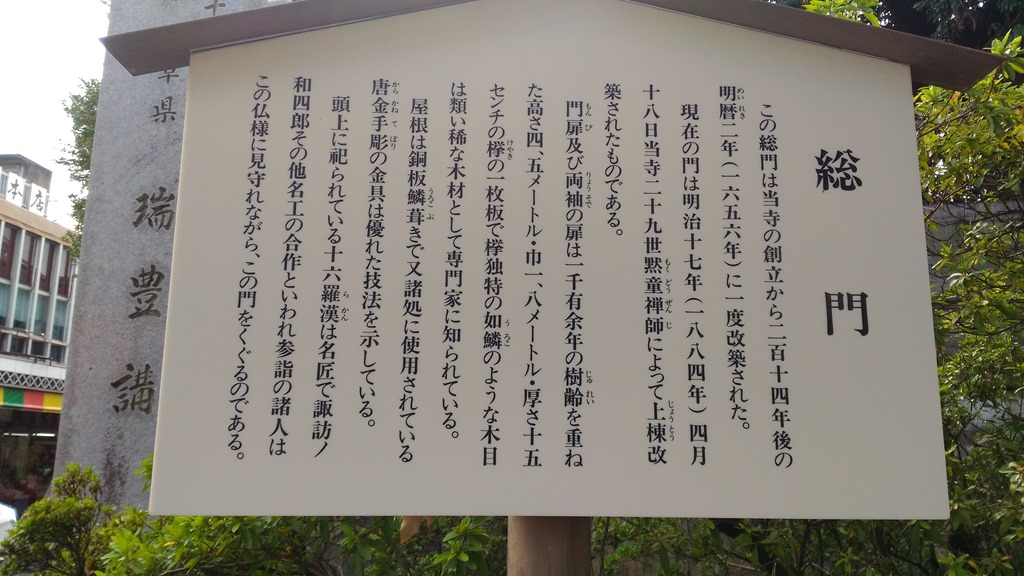 総門
この総門は当寺の創立から二百十四年後の
明暦二年(一六五六年)に一度改築された。
現在の門は明治十七年(一八八四年)四月
十八日当寺二十九世黙童禅師によって上棟改
築されたものである。
門扉及び両袖の扉は一千有余年の樹齢を重ね
た高さ四、五メートル・巾一、八メートル・厚さ十五
センチの欅の一枚板で欅独特の如鱗のような木目
は類い稀な木材として専門家に知られている。
屋根は銅板鱗葺きで又諸処に使用されている
唐金手彫の金具は優れた技法を示している。
頭上に祀られている十六羅漢は名匠で諏訪ノ
和四郎その他名工の合作といわれ参詣の諸人は
この仏様に見守れながら、この門をくぐるのである。
県
瑞豊講
本店